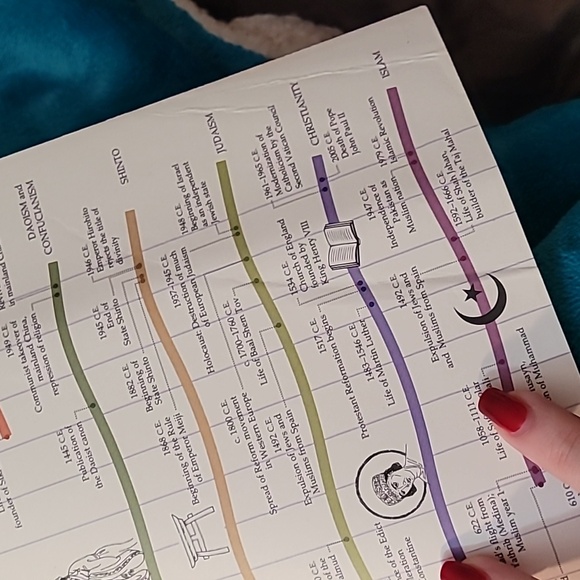 ISLAM
1979 C.E.
Islamic Revolution
1947 C.E.
Independence of
Pakistan as
Muslim nation
1592–1666 C.E.
Life of Shah Jahan,
builder of the Taj Mahal
1492 C.E.
Expulsion of Jews and
and Muslims from Spain
1058–1111 C.E.
622 C.E.
Muslim year 1
610
CHRISTIANITY
2005 C.E.
Death of Pope
John Paul II
1961–1965 C.E.
Modernization of
Catholicism by the
Second Vatican council
1534 C.E.
Church of England
founded by
King Henry VIII
1517 C.E.
Protestant Reformation begins
1483–1546 C.E.
Life of Martin Luther
JUDAISM
1948 C.E.
Beginning of Israel
as an independent
Jewish state
1937–1945 C.E.
Holocaust: Destruction of much
of European Judaism
C. 1700–1760 C.E.
Life of Baal Shem Tov
C. 1800 C.E.
Spread of Reform movement
in Western Europe
1492 C.E.
Expulsion of Jews and
Muslims from Spain
SHINTO
1946 C.E.
Emperor Hirohito
rejects the title of
divinity
1945 C.E.
End of
State Shinto
1882 C.E.
Beginning of
State Shinto
1868 C.E.
Beginning of the Rule
of Emperor Meiji
DAOISM and
CONFUCIANISM
1949 C.E.
Communist takeover of
mainland China,
repression of religion
1445 C.E.
the Daoist canon
founder of